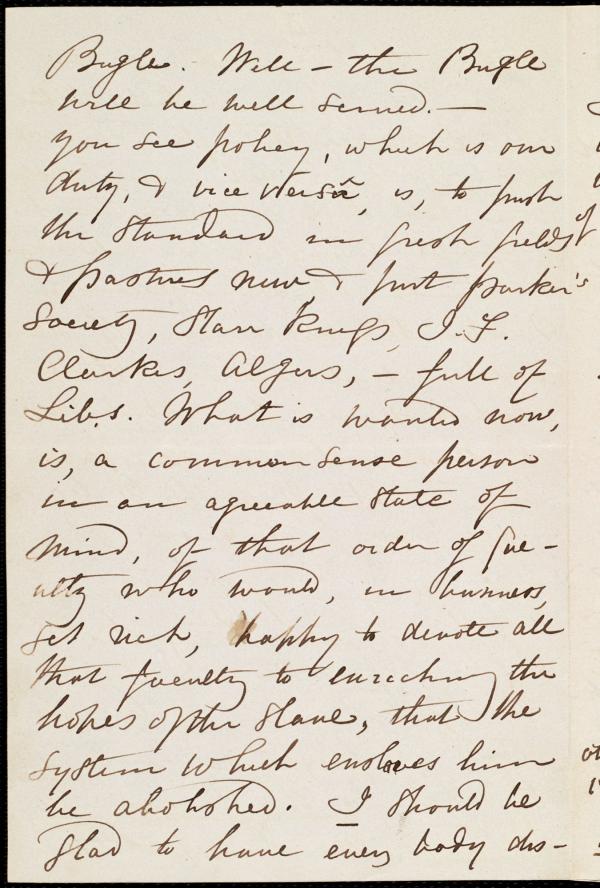 Bugle. Well – the Bugle
will be well served. —
you see policy, which is our
duty, & vice versâ, is, to push
the Standard in fresh fields
& pastures new, & put Parker's
Society, Starr Kings, J. F.
Clarkes, Algers, – full of
Libs. What is wanted now,
is, a common sense person
in an agreeable state of
mind, of that order of fac-
ulty who would, in business,
get rich, happy to devote all
that faculty to enriching the
hopes of the slave, that the
system which enslaves him
be abolished. I should be
glad to have every body dis-